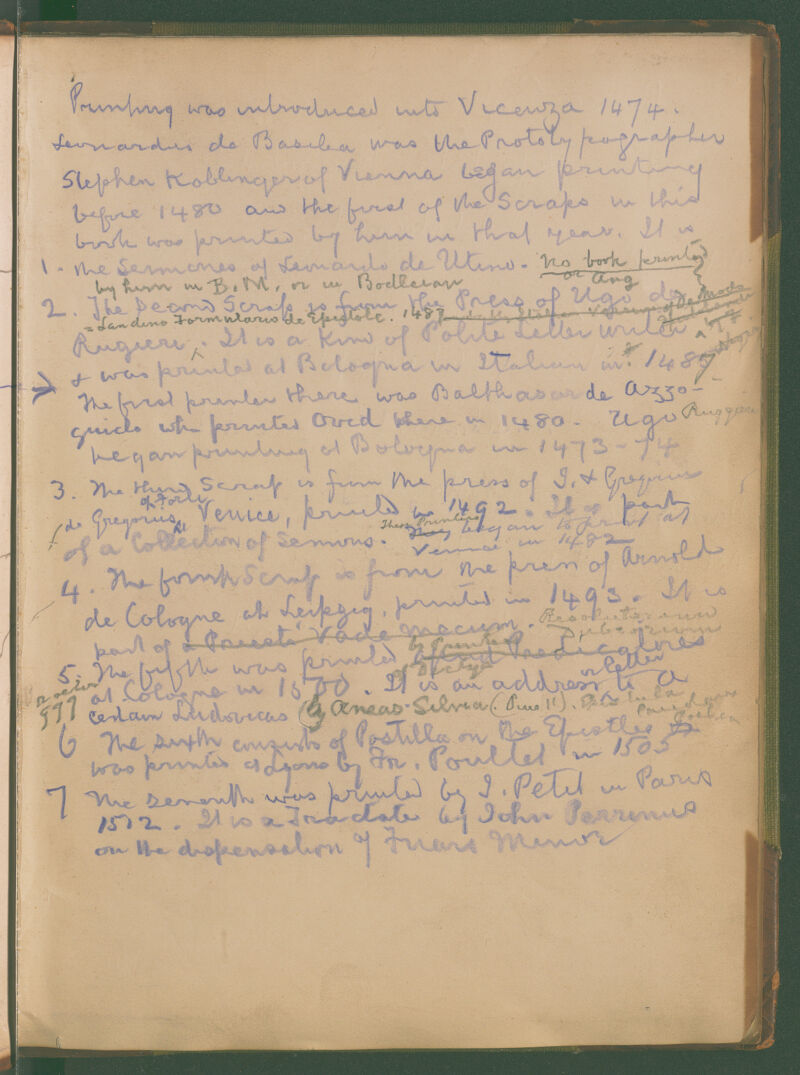 Printing was introduced into Vicenza 1474.
Leonardus de Basilea was the Prototypographer
Stephen Koblinger of Vienna began printing
before 1480 and the first of the Scraps in this
book was printed by him in that year. It is
1. the Sermones of Leonardo de Utino. No book printed
by him in B.M. or in Bodleian or Ang
2. The Second Scrap is from the Press of Ugo de
= Landino Formulario de Epistole. 1487
Rugieri. It is a Kind of Polite Letter writer
& was printed at Bologna in Italian in 148
The first printer there was Balthasar de Azzo-
guido who printed Ovid there in 1480. Ugo Ruggeri
began printing at Bologna in 1473-74
3. The third Scrap is from the press of J. & Gregorius
de Gregorius of Forli Venice, printed in 1492. It is part
of a Collection of Sermons. These Printers began to print at
Venice in 1482
4. The fourth Scrap is from the press of Arnold
de Cologne at Leipzig, printed in 1493. It is
part of a Priests' Vade mecum.
5. The fifth was printed by Printer
at Cologne in 1500. It is an address or letter to a
certain Ludovicas (by Aeneas Silvia (Pius II).
6 The sixth consists of Postilla on the Epistles
was printed at Lyons by Fr. Poullet in 1505
7 The seventh was printed by J. Petit in Paris
1512. It is a Tractate by John Perrenus
on the dispensation of Friars Minor